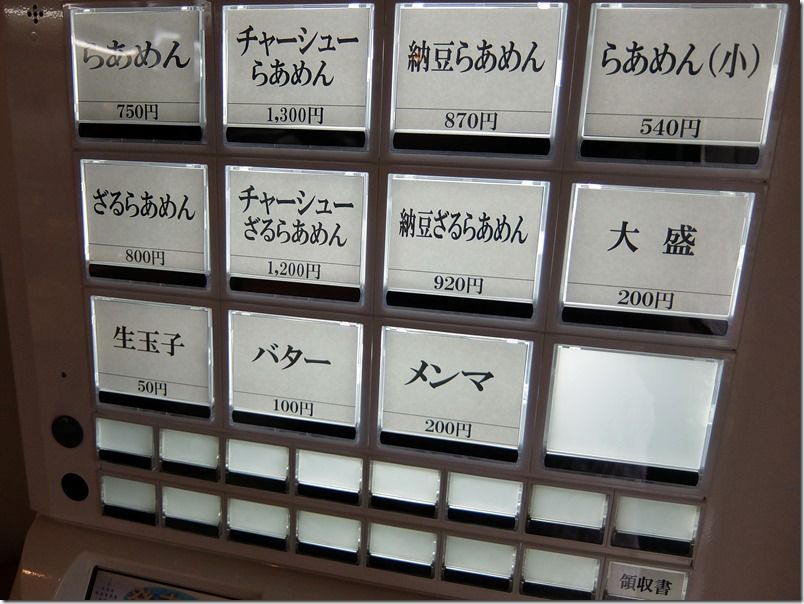 らあめん
750円
チャーシュー
らあめん
1,300円
納豆らあめん
870円
らあめん(小)
540円
ざるらあめん
800円
チャーシュー
ざるらあめん
1,200円
納豆ざるらあめん
920円
大 盛
200円
生玉子
50円
バター
100円
メンマ
200円
領収書